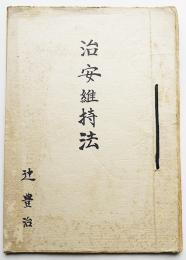 治安維持法
辻豊治